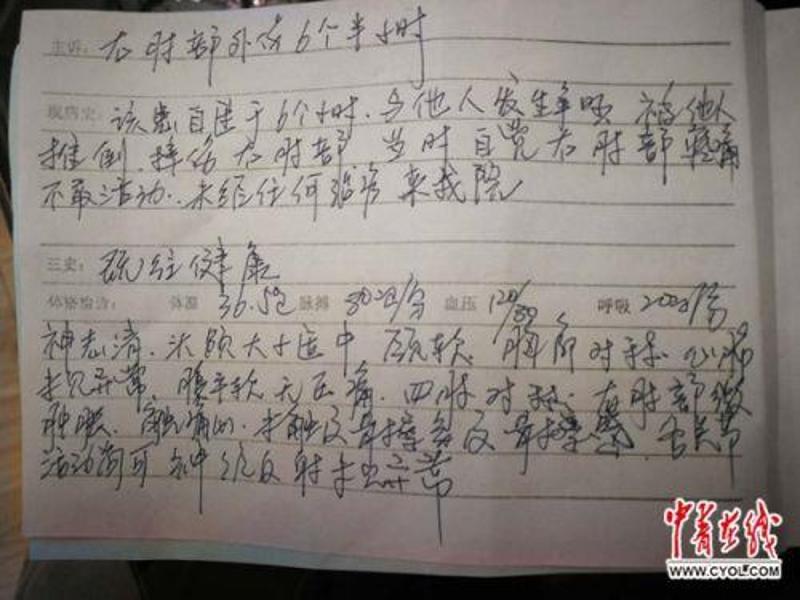 主诉: 右肘部外伤6个半小时
现病史: 该患自述于6个小时.与他人发生争吵 被他人
推倒.摔伤右肘部 当时自觉右肘部疼痛
不敢活动.未经任何治疗 来我院
三史: 既往健康
体格检查: 体温 36.5℃ 脉搏 80次/分 血压 120/80 呼吸 20次/分
神志清.头颅大小适中 颈软 胸廓对称.心肺
未见异常.腹平软 无压痛.四肢对称.右肘部微
肿胀.触痛(+).未触及骨擦音及骨擦感.各关节
活动尚可 神经反射未见异常
中青在线
WWW.CYOL.COM